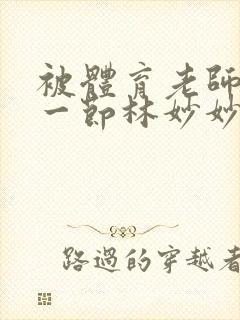 被體育老師
一節林妙妙
路過的穿越者